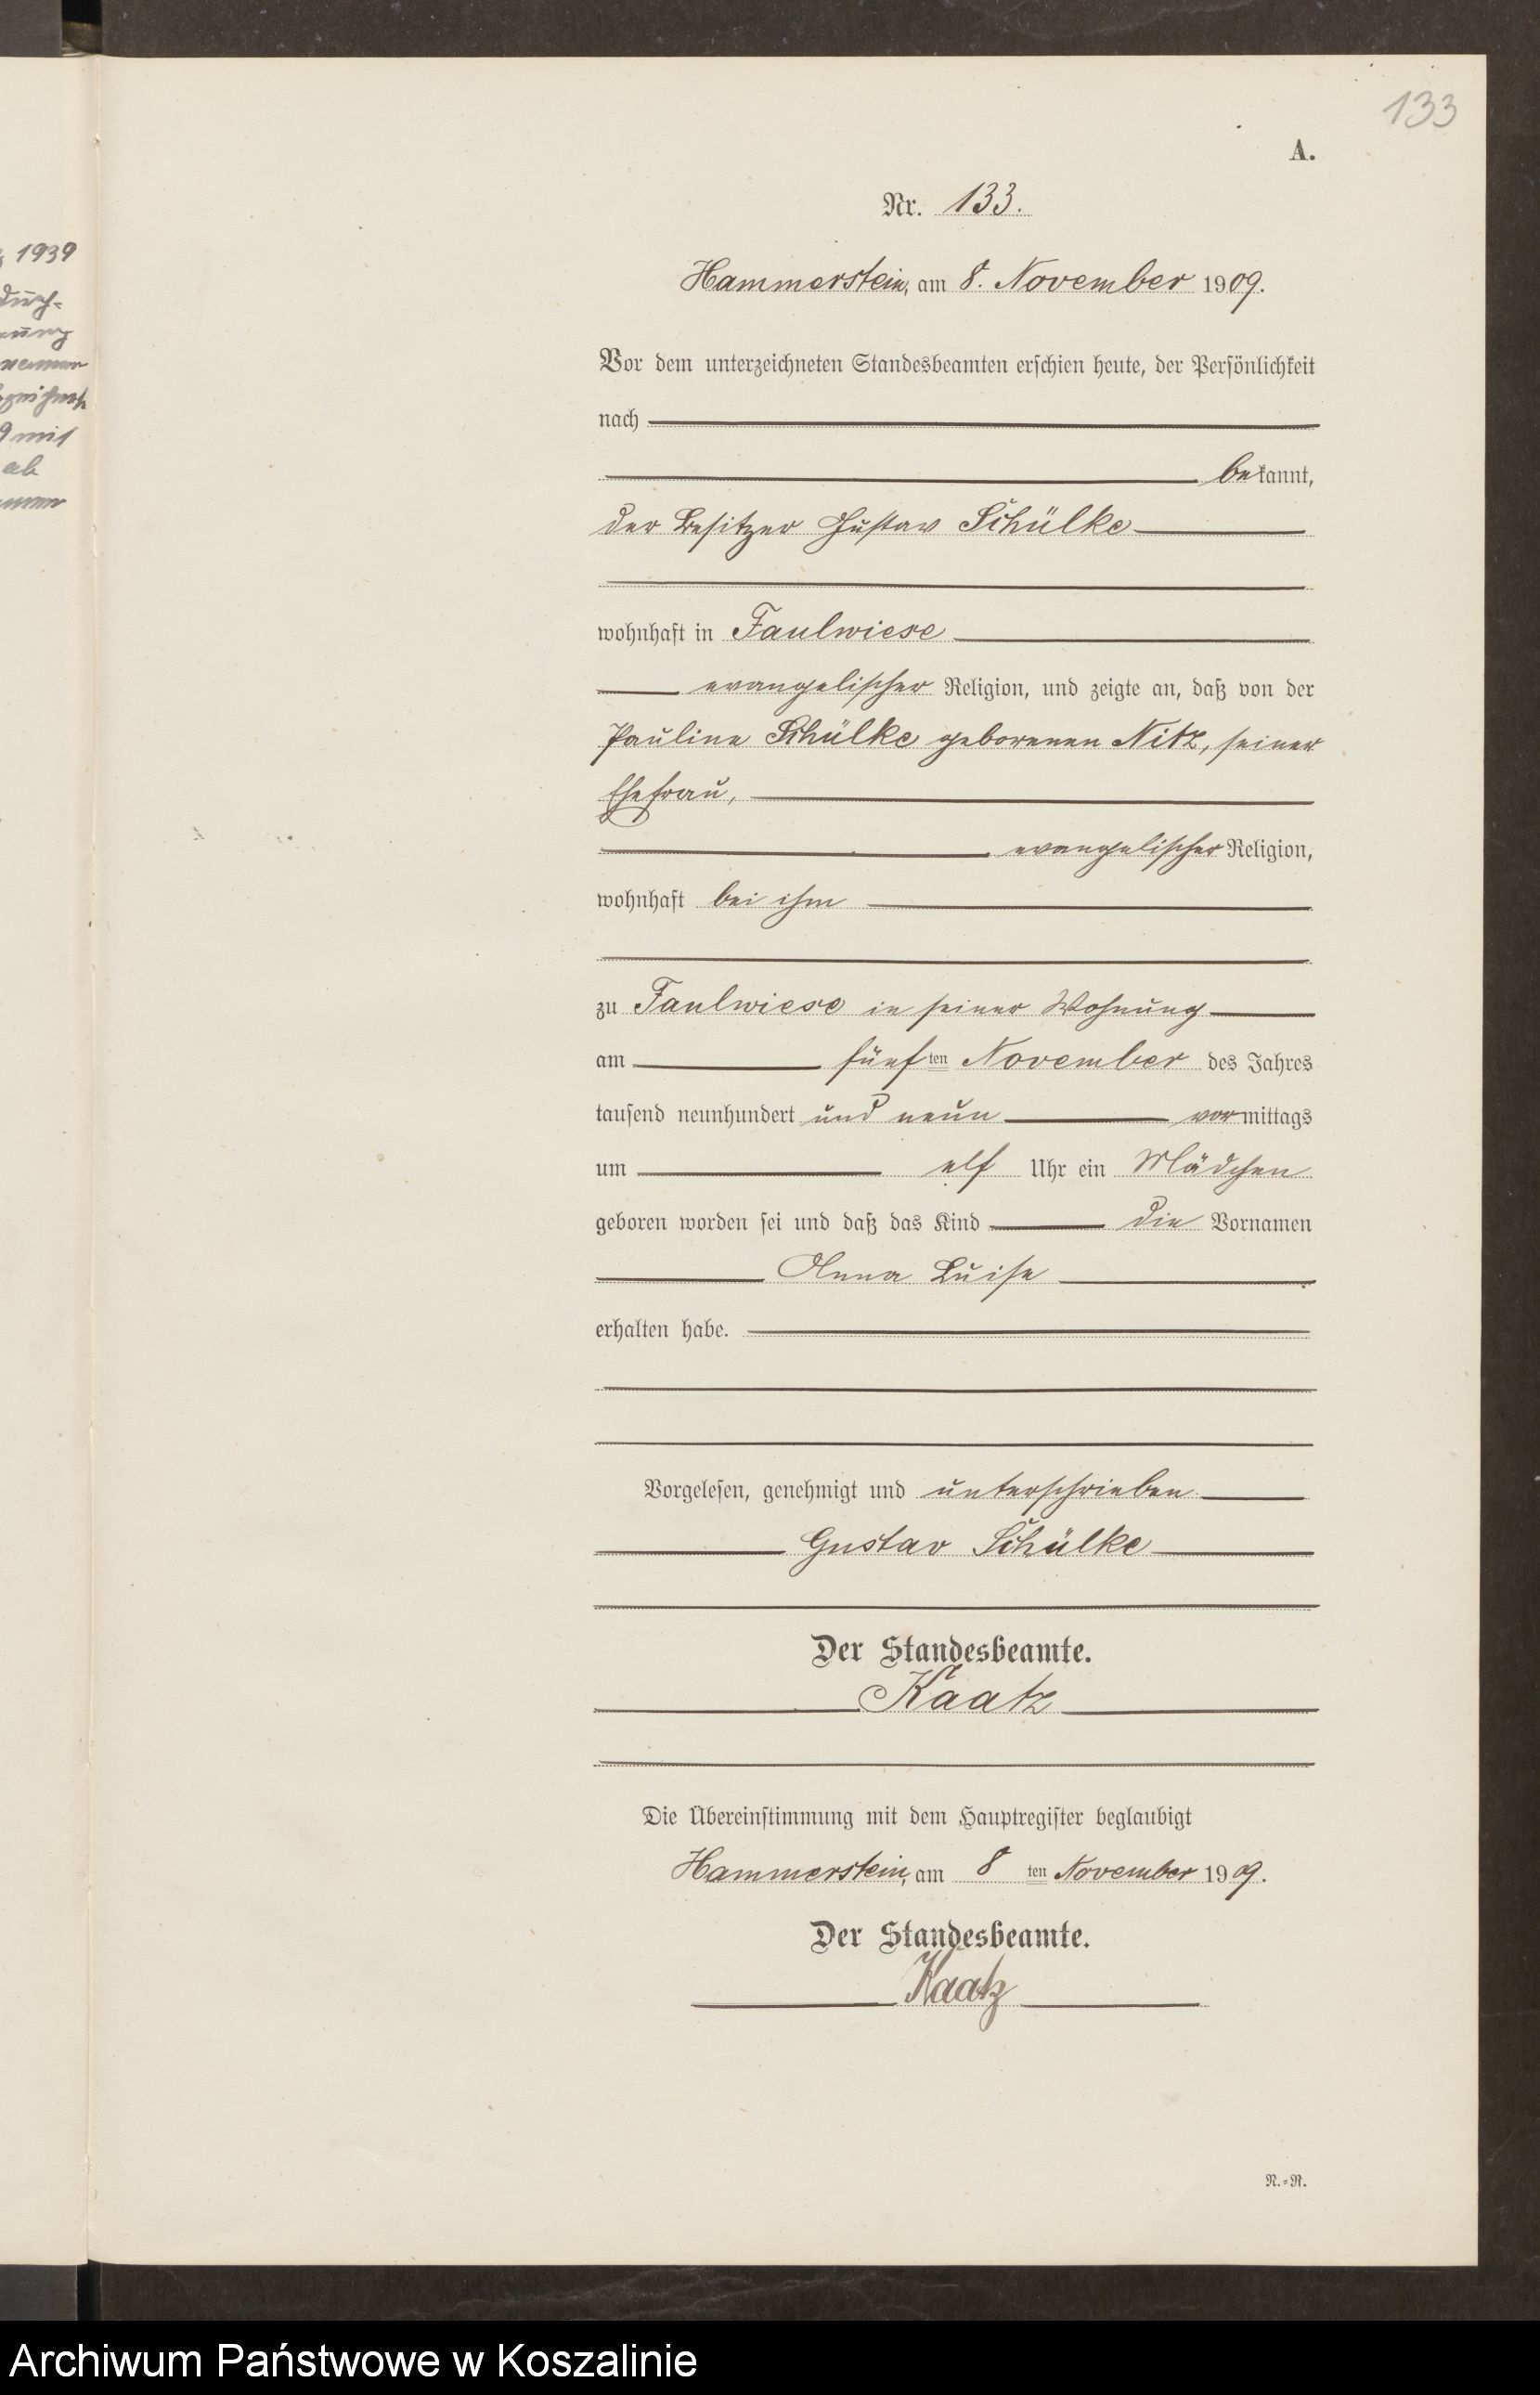 133
A.
Nr. 133.
Hammerstein, am 8. November 1909.
Vor dem unterzeichneten Standesbeamten erschien heute, der Persönlichkeit
nach
bekannt,
der Besitzer Gustav Schülke
wohnhaft in Faulwiese
evangelischer Religion, und zeigte an, daß von der
Pauline Schülke geborenen Nitz, seiner
Ehefrau,
evangelischer Religion,
wohnhaft bei ihm
zu Faulwiese in seiner Wohnung
am fünften November des Jahres
tausend neunhundert und neun vormittags
um elf Uhr ein Mädchen
geboren worden sei und daß das Kind die Vornamen
Anna Luise
erhalten habe.
Vorgelesen, genehmigt und unterschrieben
Gustav Schülke
Der Standesbeamte.
Kaatz
Die Übereinstimmung mit dem Hauptregister beglaubigt
Hammerstein, am 8ten November 1909.
Der Standesbeamte.
Kaatz
N.=R.
1939
mit
ab
Archiwum Państwowe w Koszalinie